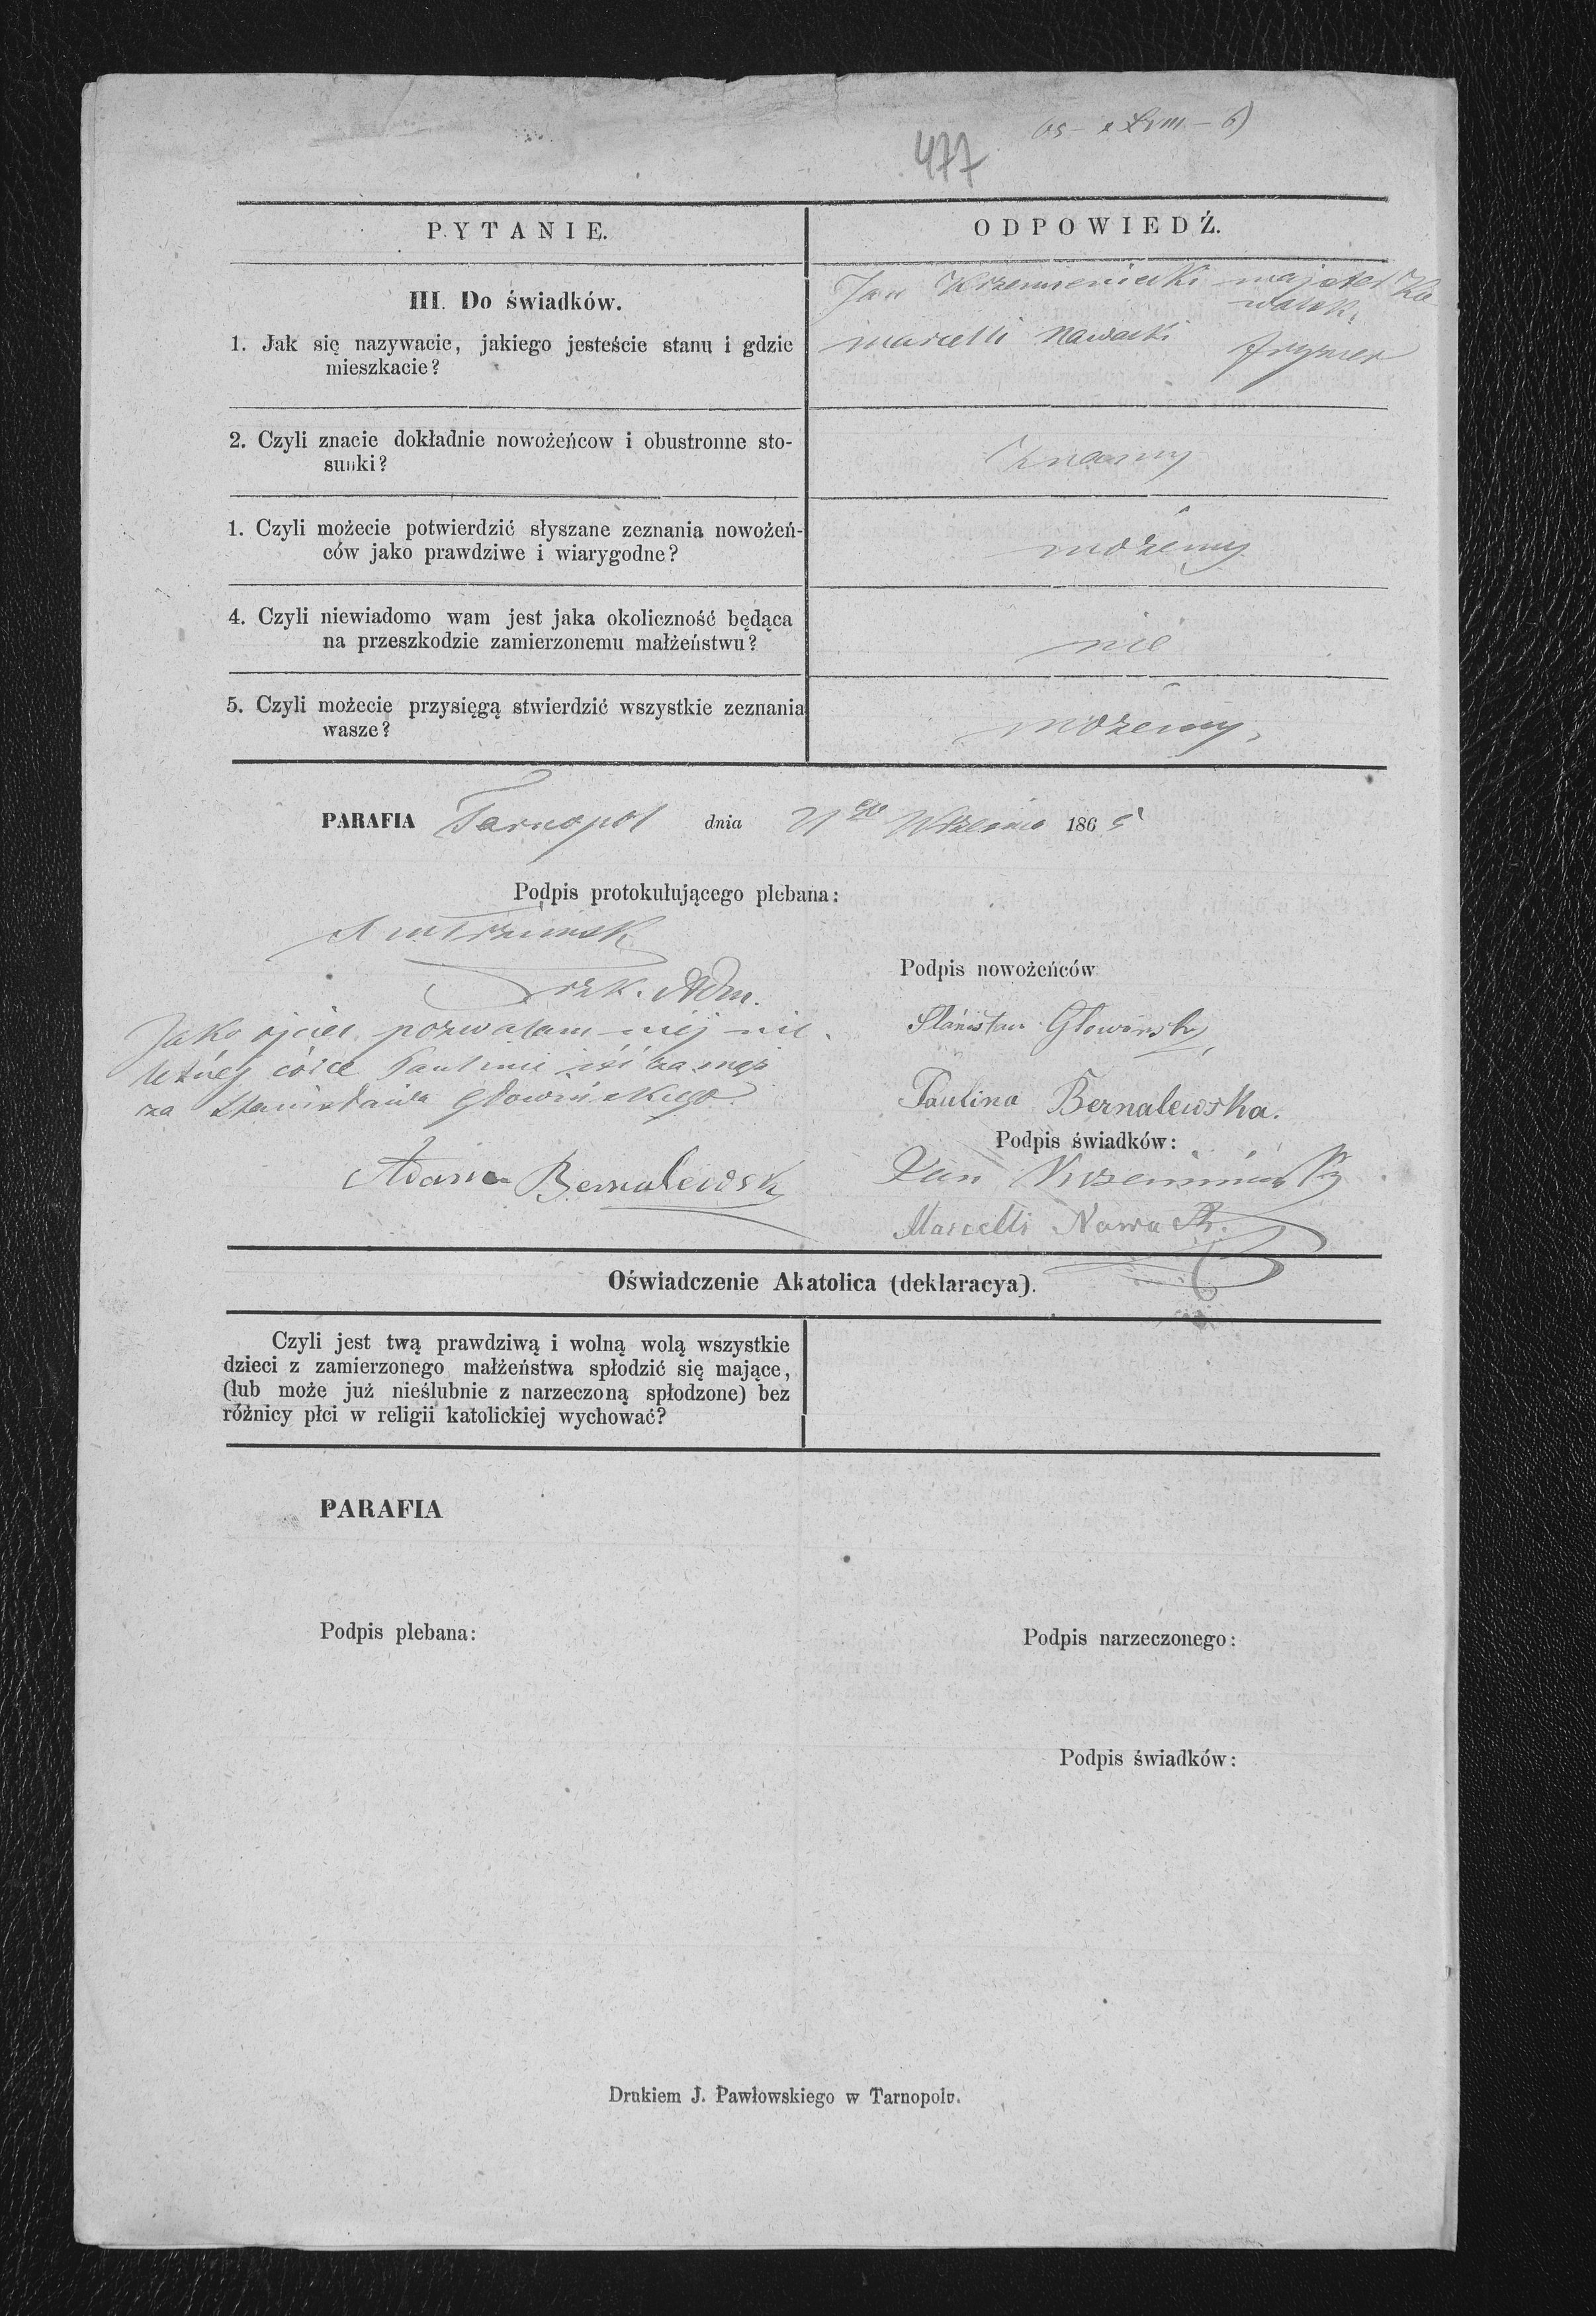 477
PYTANIE.
ODPOWIEDŹ.
III. Do świadków.
1. Jak się nazywacie, jakiego jesteście stanu i gdzie
mieszkacie?
Jan
Marcelli Nawacki fryzyer
2. Czyli znacie dokładnie nowożeńcow i obustronne sto-
sunki?
Znamy
1. Czyli możecie potwierdzić słyszane zeznania nowożeń-
ców jako prawdziwe i wiarygodne?
możemy
4. Czyli niewiadomo wam jest jaka okoliczność będąca
na przeszkodzie zamierzonemu małżeństwu?
nie
5. Czyli możecie przysięgą stwierdzić wszystkie zeznania
wasze?
możemy
PARAFIA Tarnopol dnia 21go Września 1865
Podpis protokułującego plebana:
Adm.
Podpis nowożeńców
Stanisław Głowiński
Paulina Bernalewska.
Jako ojciec pozwalam méj nie-
letniéj córce Paulinie iść za mąż
za Stanisława Głowińskiego.
Adam Bernalewski
Podpis świadków:
Jan
Marcelli Nawacki.
Oświadczenie Akatolica (deklaracya).
Czyli jest twą prawdziwą i wolną wolą wszystkie
dzieci z zamierzonego małżeństwa spłodzić się mające,
(lub może już nieślubnie z narzeczoną spłodzone) bez
różnicy płci w religii katolickiej wychować?
PARAFIA
Podpis plebana:
Podpis narzeczonego:
Podpis świadków:
Drukiem J. Pawłowskiego w Tarnopolu.